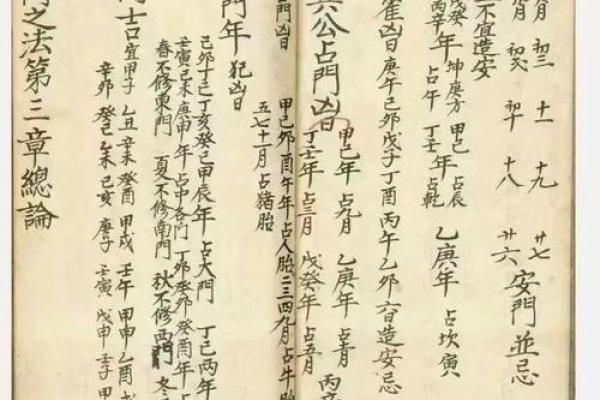 月 初三 十一 十九 廿七
初十 十八 廿六 安門並忌
不宜造安
戊癸年 坤庚方 甲己年占辰
丙辛年 占午 丁壬年占乾 乙庚年 占坎寅
雀凶日 庚午己卯戊子丁酉 丙午 乙卯 六日造安忌
共公占門凶 甲己年 占九月 乙庚年 丙
丁壬年 占三月 戊癸年 占五月
門凶日 甲己卯酉午年占人胎二三四九月占牛胎
五七十一月占豬胎
門年 犯凶日
己卯丁巳丁亥癸巳甲辰年 占大門 丁己丙年
壬寅己未庚申年占中宮門 丁卯癸卯癸酉年占
春不修東門 夏不修南門 秋不修西門 冬
士吉宜甲子 乙丑 辛未 癸酉 甲戌 壬午 甲申 乙酉 戊
辛卯 癸巳 乙未 己亥 庚子 壬寅 戊申 壬子 甲
之法第三章總論